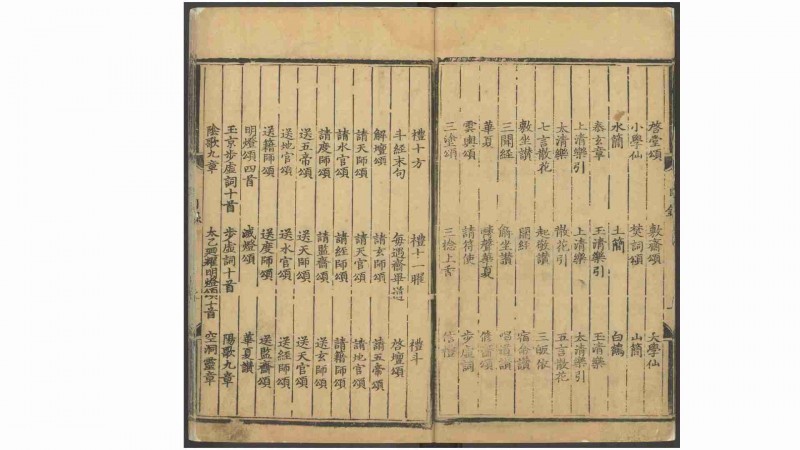 啓堂頌 敷齋頌 大學仙
小學仙 焚詞頌 山簡
水簡 土簡 白薦
泰玄章 玉清樂引 玉清樂
上清樂引 上清樂 太清樂引
太清樂 散花引 五言散花
七言散花 起敬讚 三皈依
敷坐讚
三聞經
華夏 聲華夏
雲輿頌 請符使 步虛詞
三塗頌 三捻上香
禮十方 禮十一曜 禮斗
斗經末句 每遇齋畢 啓壇頌
解壇頌 請玄師頌 請五帝頌
請天師頌 請天官頌 請地官頌
請水官頌 請經師頌 請籍師頌
請度師頌 請監齋頌 送玄師頌
送五帝頌 送天師頌 送天官頌
送地官頌 送水官頌 送經師頌
送籍師頌 送度師頌 送監齋頌
明燈頌四首 滅燈頌 華夏讚
玉京步虛詞十首 步虛詞十首 陽歌九章
陰歌九章 太乙四耀明燈頌十首 空洞靈章